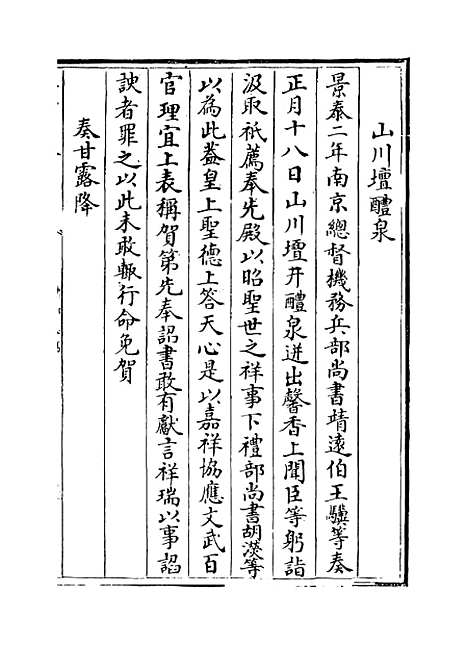 山川壇醴泉
景泰二年南京總督機務兵部尚書靖遠伯王驥等奏
正月十八日山川壇井醴泉迸出馨香上聞臣等躬詣
汲取祇薦奉先殿以昭聖世之祥事下禮部尚書胡濙等
以為此葢皇上聖德上答天心是以嘉祥協應文武百
官理宜上表稱賀第先奉詔書敢有獻言祥瑞以事諂
諛者罪之以此未敢輙行命免賀
奏甘露降